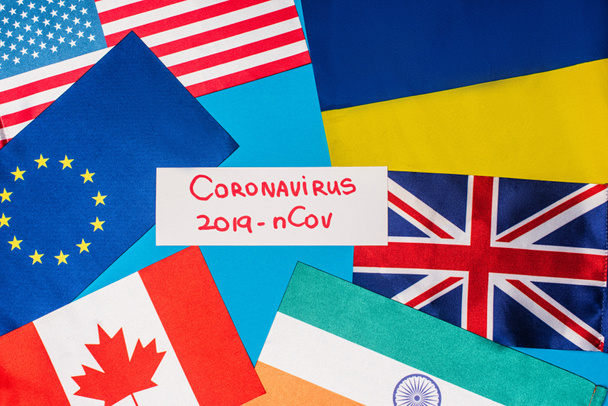 Coronavirus
2019-nCov